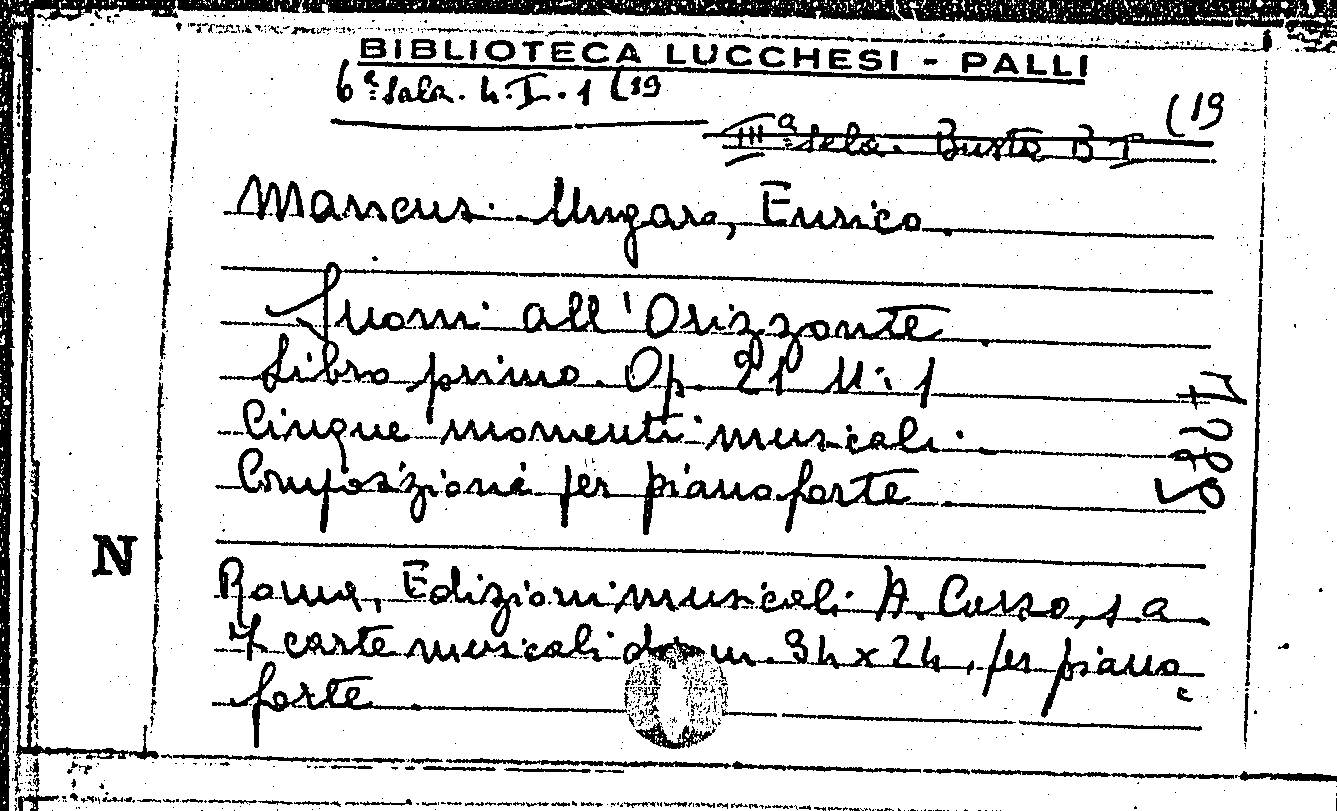 BIBLIOTECA LUCCHESI - PALLI
6ª Sala. 4. I. 1 (19
(19
IIIª Sala. Busta B I
Mancus. Ungaro, Enrico.
Suoni all'Orizzonte.
Libro primo. Op. 21 N. 1
Cinque momenti musicali.
Composizioni per pianoforte
N
Roma, Edizioni musicali A. Curso, s. a.
7 carte musicali di m. 34 x 24, per piano
forte.